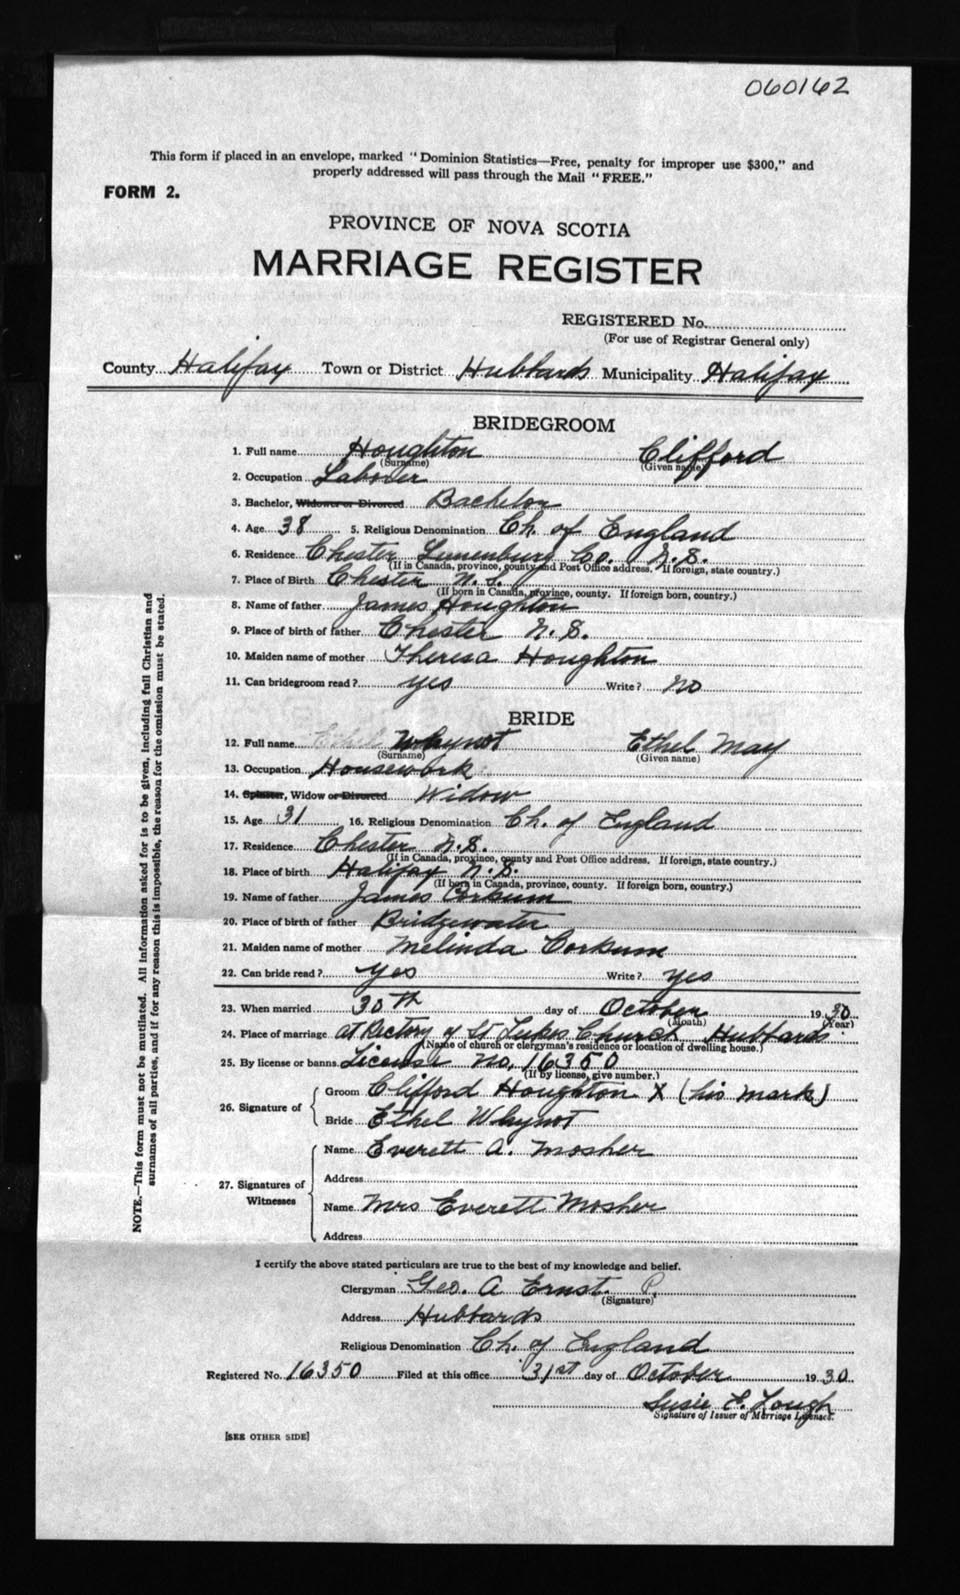 060162
This form if placed in an envelope, marked "Dominion Statistics—Free, penalty for improper use $300," and
properly addressed will pass through the Mail "FREE."
FORM 2.
PROVINCE OF NOVA SCOTIA
MARRIAGE REGISTER
REGISTERED No.
(For use of Registrar General only)
County Halifax Town or District Hubbards Municipality Halifax
BRIDEGROOM
1. Full name Houghton Clifford
(Surname) (Given name)
2. Occupation Laborer
3. Bachelor, Widower or Divorced Bachelor
4. Age 38 5. Religious Denomination Ch. of England
6. Residence Chester Lunenburg Co. N.S.
(If in Canada, province, county and Post Office address. If foreign, state country.)
7. Place of Birth Chester N.S.
(If born in Canada, province, county. If foreign born, country.)
8. Name of father James Houghton
9. Place of birth of father Chester N.S.
10. Maiden name of mother Theresa Houghton
11. Can bridegroom read? yes Write? no
BRIDE
12. Full name Ethel Whynot Ethel May
(Surname) (Given name)
13. Occupation Housework
14. Spinster, Widow or Divorced Widow
15. Age 31 16. Religious Denomination Ch. of England
17. Residence Chester N.S.
(If in Canada, province, county and Post Office address. If foreign, state country.)
18. Place of birth Halifax N.S.
(If born in Canada, province, county. If foreign born, country.)
19. Name of father James Corkum
20. Place of birth of father Bridgewater
21. Maiden name of mother Melinda Corkum
22. Can bride read? yes Write? yes
23. When married 30th day of October 1930
(Month) (Year)
24. Place of marriage at Rectory of St Lukes Church Hubbards
(Name of church or clergyman's residence or location of dwelling house.)
25. By license or banns License No. 16350
(If by license, give number.)
26. Signature of Groom Clifford Houghton X (his mark)
Bride Ethel Whynot
27. Signatures of Witnesses Name Everett A. Mosher
Address
Name Mrs Everett Mosher
Address
I certify the above stated particulars are true to the best of my knowledge and belief.
Clergyman Geo. A Ernst. P.
(Signature)
Address Hubbards
Religious Denomination Ch. of England
Registered No. 16350 Filed at this office 31st day of October 1930
Susie E. Lough
Signature of Issuer of Marriage Licenses.
[SEE OTHER SIDE]
NOTE.—This form must not be mutilated. All information asked for is to be given, including full Christian and
surnames of all parties, and if for any reason this is impossible, the reason for the omission must be stated.